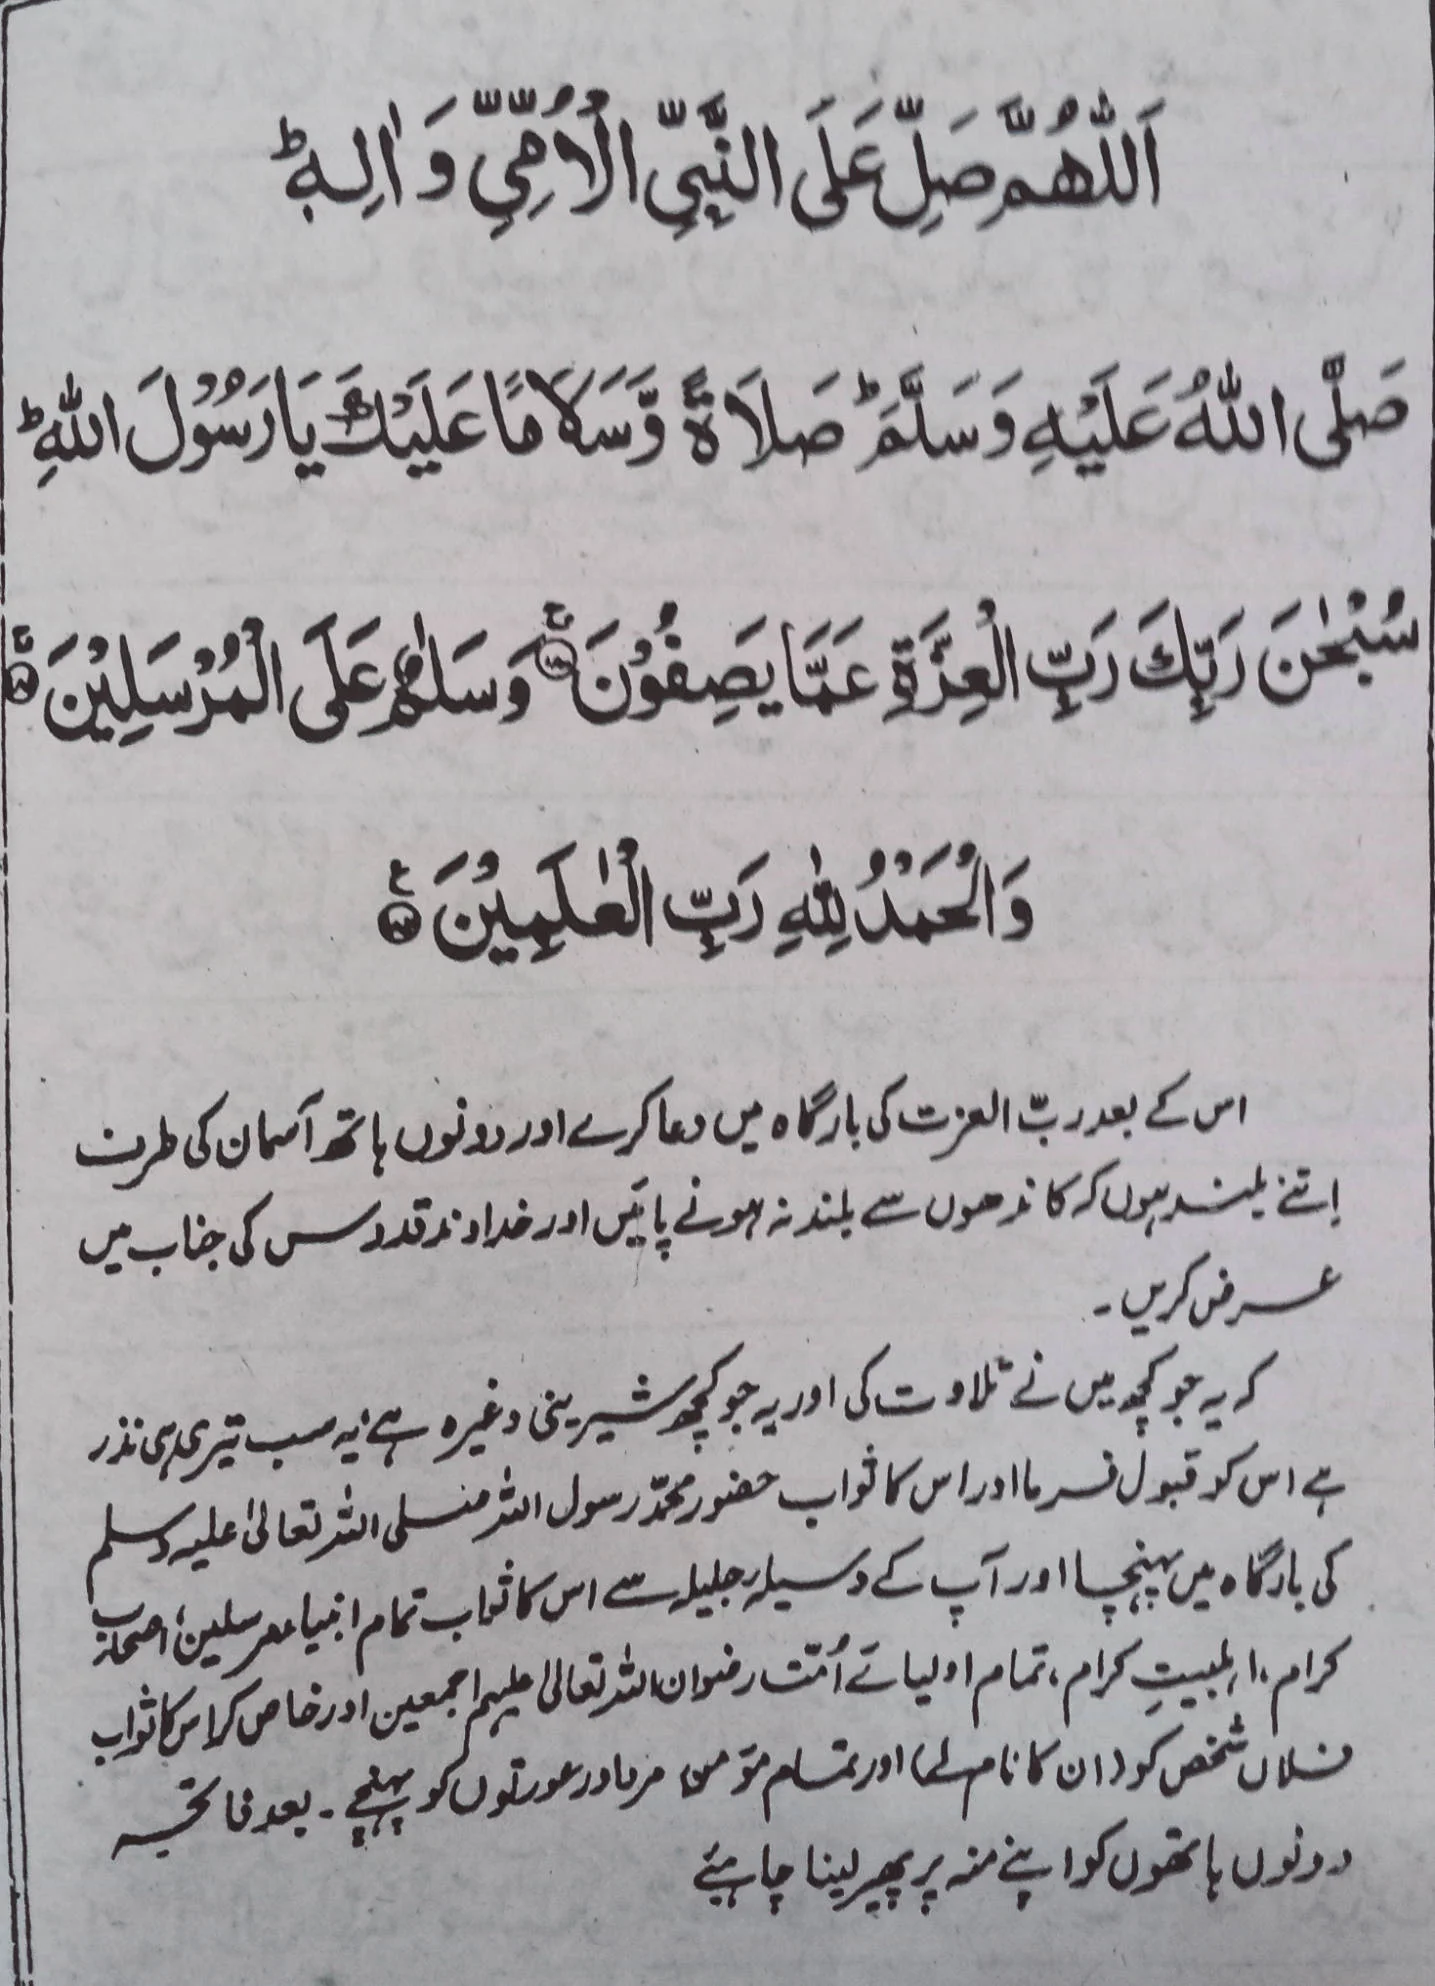 اَللّٰهُمَّ صَلِّ عَلَى النَّبِيِّ الْاُمِّيِّ وَاٰلِهٖ ؕ
صَلَّى اللّٰهُ عَلَيْهِ وَسَلَّمَ ؕ صَلَاةً وَّسَلَامًا عَلَيْكَ يَا رَسُوْلَ اللّٰهِ ؕ
سُبْحٰنَ رَبِّكَ رَبِّ الْعِزَّةِ عَمَّا يَصِفُوْنَ وَسَلٰمٌ عَلَى الْمُرْسَلِيْنَ
وَالْحَمْدُ لِلّٰهِ رَبِّ الْعٰلَمِيْنَ
اس کے بعد ربّ العزت کی بارگاہ میں دعا کرے اور دونوں ہاتھ آسمان کی طرف
اِتنے بلند ہوں کہ کاندھوں سے بلند نہ ہونے پائیں اور خداوند قدوس کی جناب میں
عرض کریں۔
کہ یہ جو کچھ میں نے تلاوت کی اور یہ جو کچھ شیرینی وغیرہ ہے یہ سب تیری ہی نذر
ہے اس کو قبول فرما اور اس کا ثواب حضور محمّد رسول اللہ صلی اللہ تعالیٰ علیہ وسلم
کی بارگاہ میں پہنچا اور آپ کے وسیلہ جلیلہ سے اس کا ثواب تمام انبیاء مرسلین، اصحاب
کرام، اہلبیتِ کرام، تمام اولیائے اُمّت رضوان اللہ تعالیٰ علیہم اجمعین اور خاص کر اس کا ثواب
فلاں شخص کو (ان کا نام لے) اور تمام مؤمن مرد اور عورتوں کو پہنچے۔ بعد فاتحہ
دونوں ہاتھوں کو اپنے منہ پر پھیر لینا چاہیئے